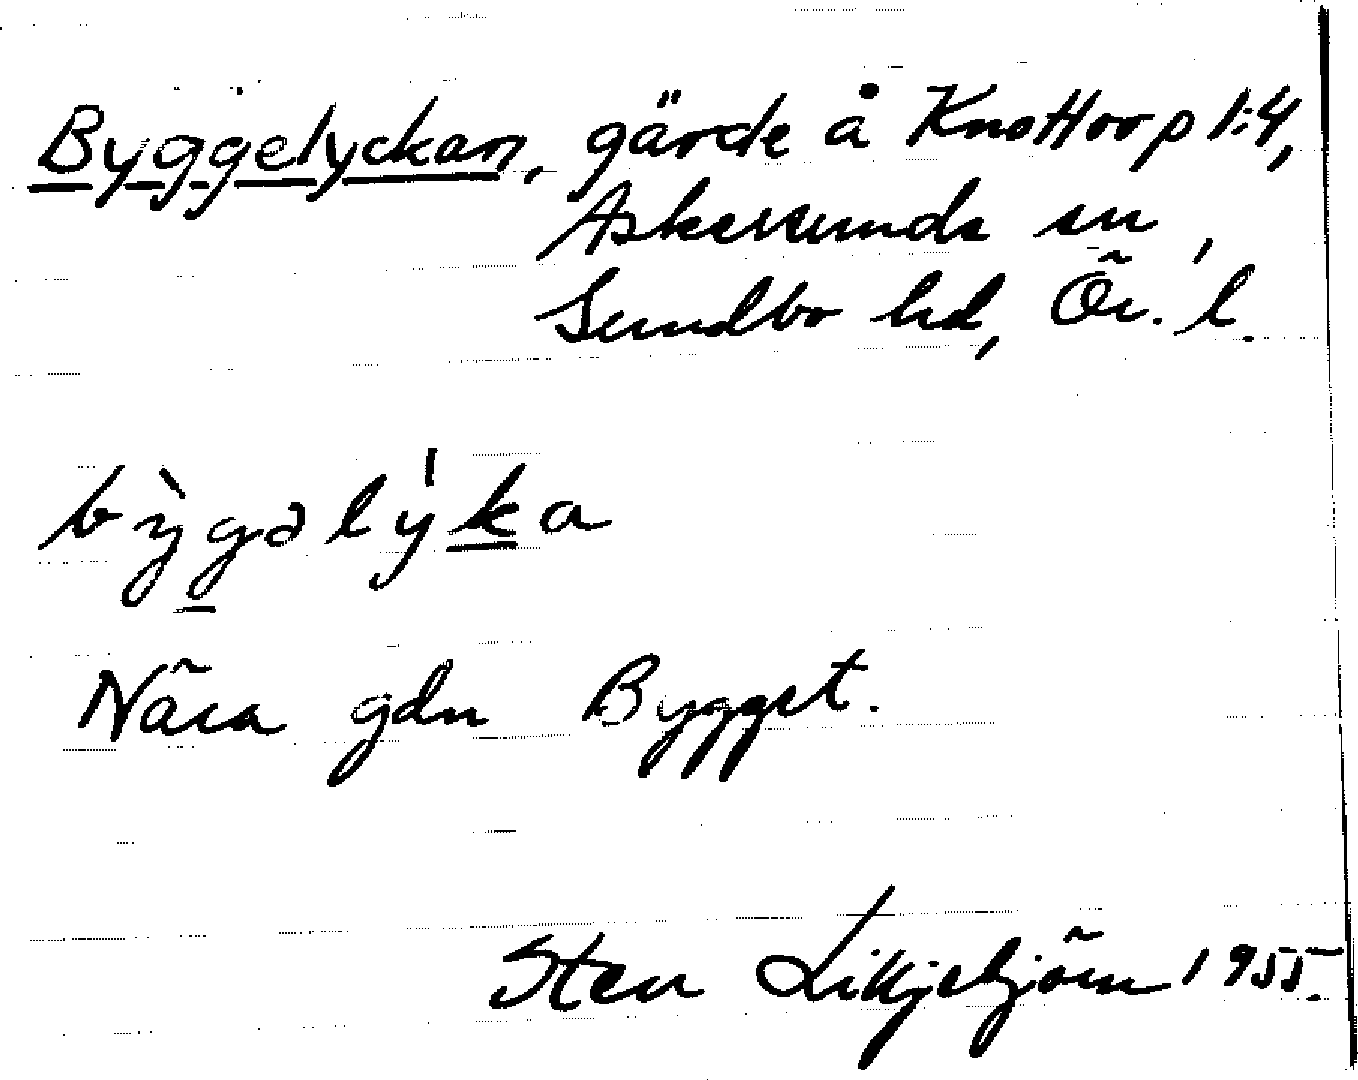 Byggelyckan, gärde å Knottorp 1:4,
Askersunds sn,
Sundbo hd, Ör. l.
bỳgəlýka
Nära gdn Bygget.
Sten 1955.